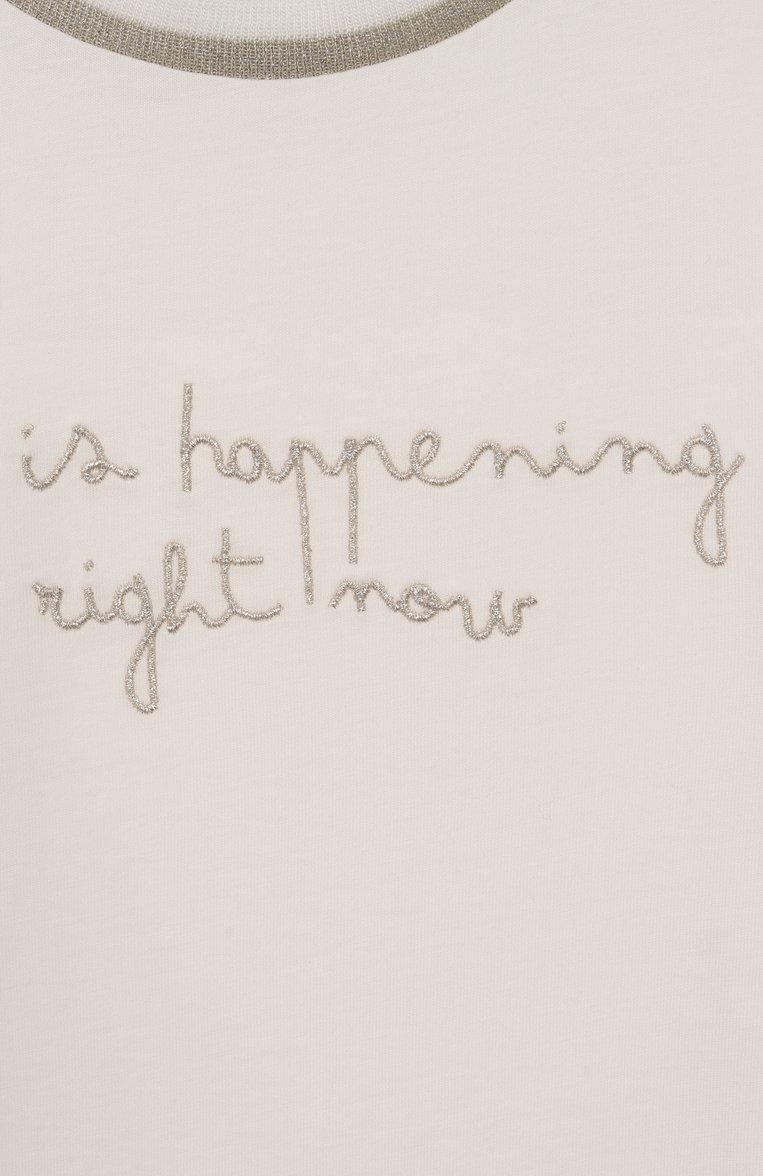 is happening
right now